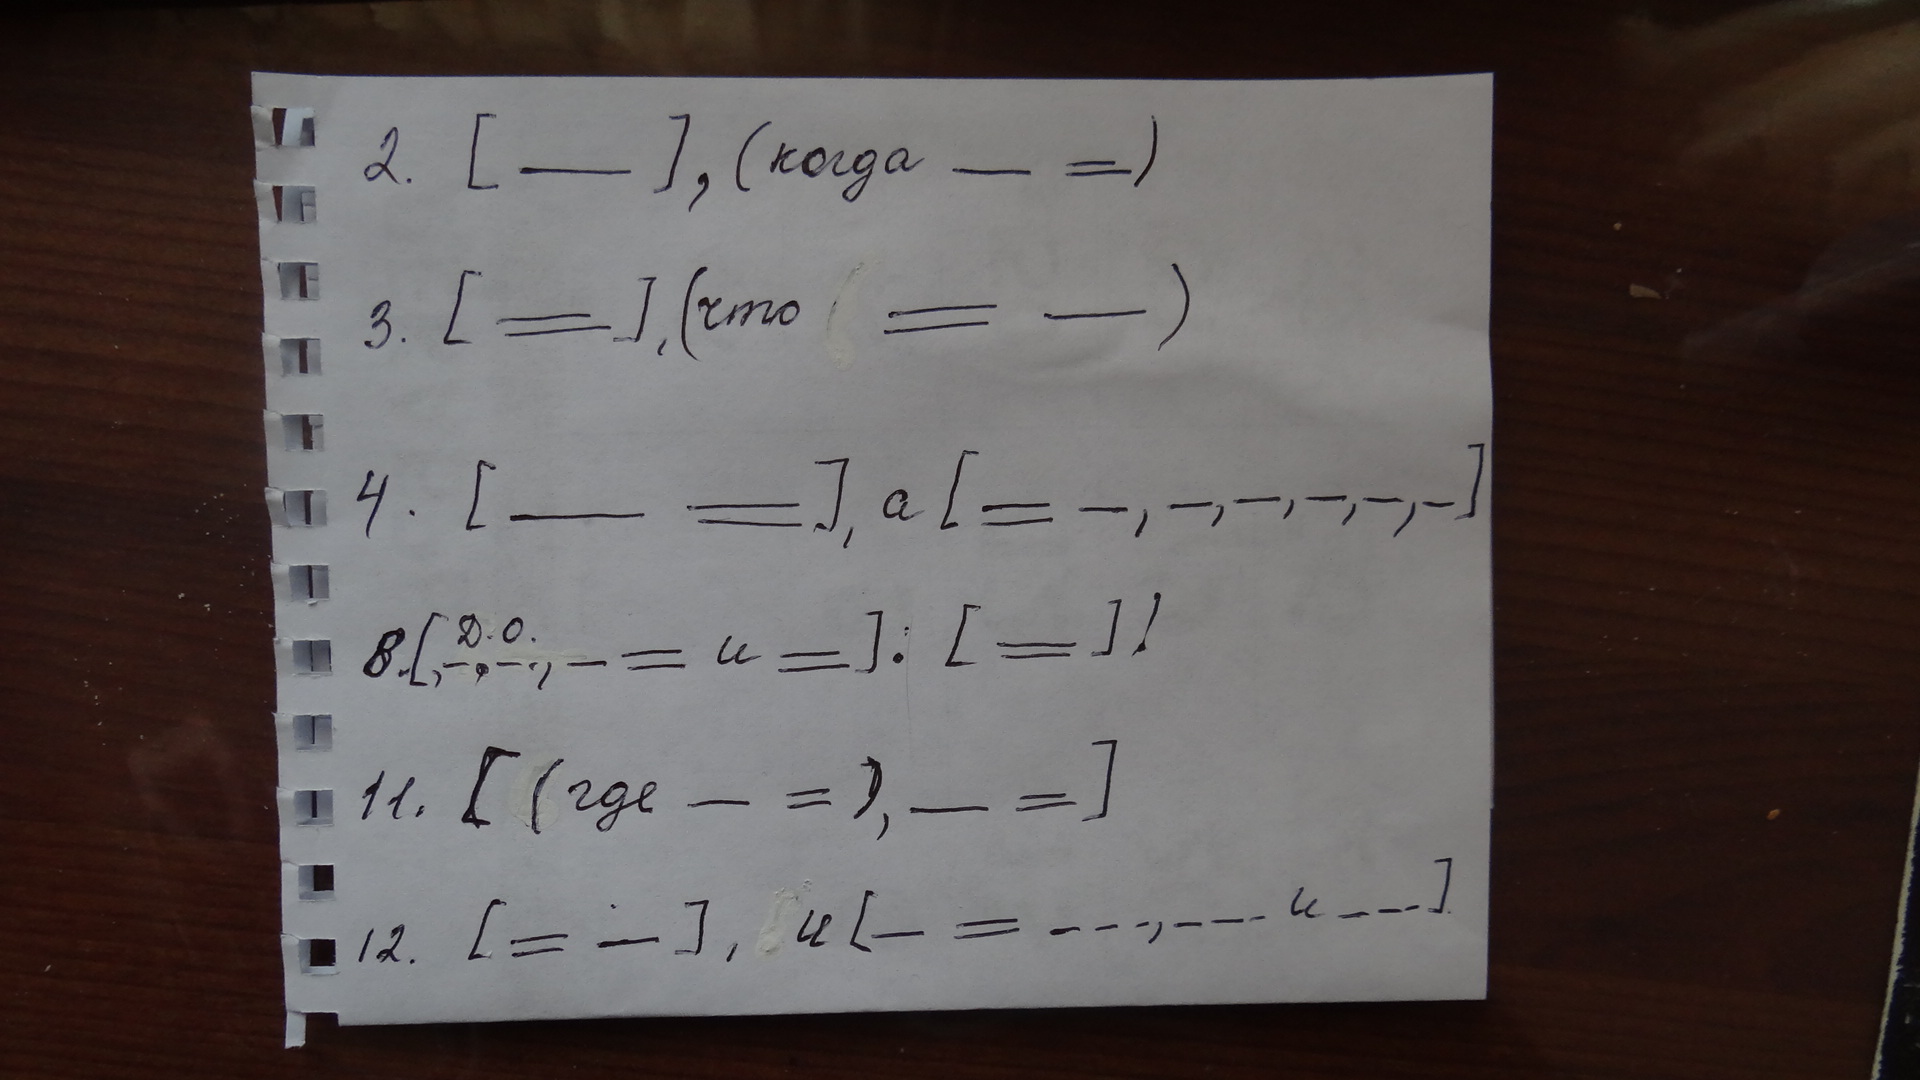 2. [ — ], (когда — =)
3. [ = ], (что = —)
4. [ — = ], а [ = —, —, —, —, —, — ]
8. [, Д.О. —, —, — = и = ]: [ = ]!
11. [ (где — =), — = ]
12. [ = — ], и [ — = ---, --- и --- ]